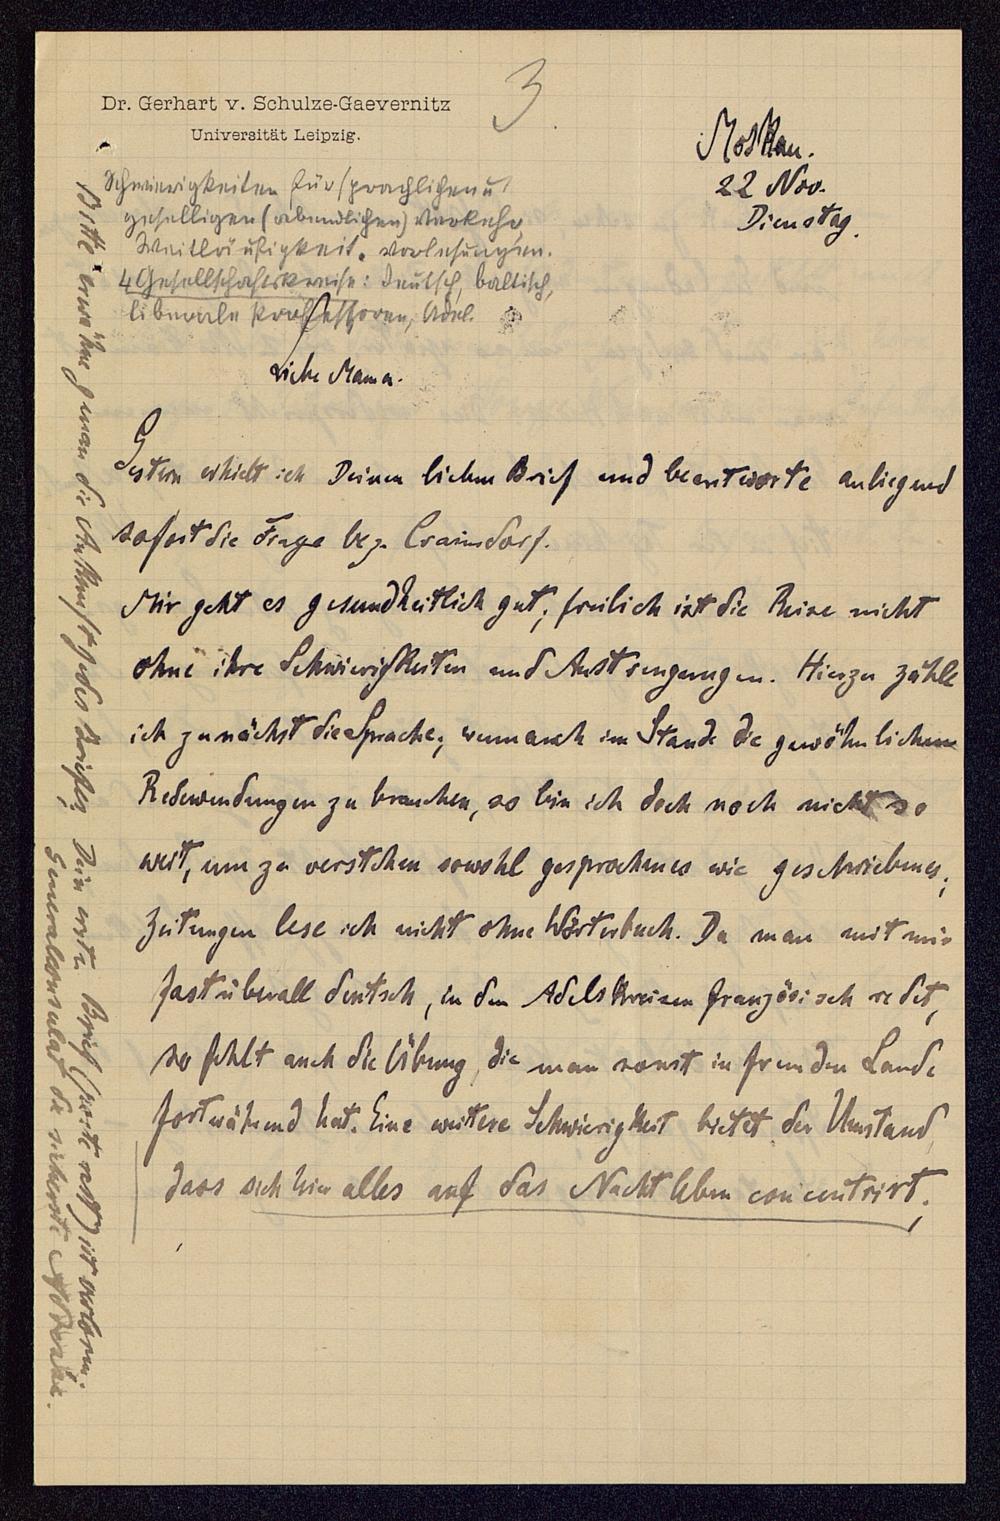 3
Dr. Gerhart v. Schulze-Gaevernitz
Universität Leipzig.
Moskau.
22 Nov.
Dienstag.
Schwierigkeiten für sprachlichen u
geselligen (abendlichen) Verkehr,
Weitläufigkeit. Vorlesungen.
4 Gesellschaftskreise: deutsch, baltisch,
liberale Professoren, Adel.
Liebe Mama.
Gestern erhielt ich Deinen lieben Brief und beantworte anliegend
sofort die Frage bez. Crainsdorf.
Mir geht es gesundheitlich gut; freilich ist die Reise nicht
ohne ihre Schwierigkeiten und Anstrengungen. Hierzu zähle
ich zunächst die Sprache; wenn auch im Stande die gewöhnlichen
Redewendungen zu brauchen, so bin ich doch noch nicht so
weit, um zu verstehen sowohl gesprochenes wie geschriebenes;
Zeitungen lese ich nicht ohne Wörterbuch. Da man mit mir
fast überall deutsch, in den Adelskreisen französisch redet,
so fehlt auch die Übung, die man sonst in fremden Lande
fortwährend hat. Eine weitere Schwierigkeit bietet der Umstand,
dass sich hier alles auf das Nachtleben concentrirt.
Bitte erwähne genau die Ankunft jedes Briefes,
Dein erster Brief (poste rest) ist verloren.
Generalconsulat die sicherste Adresse.